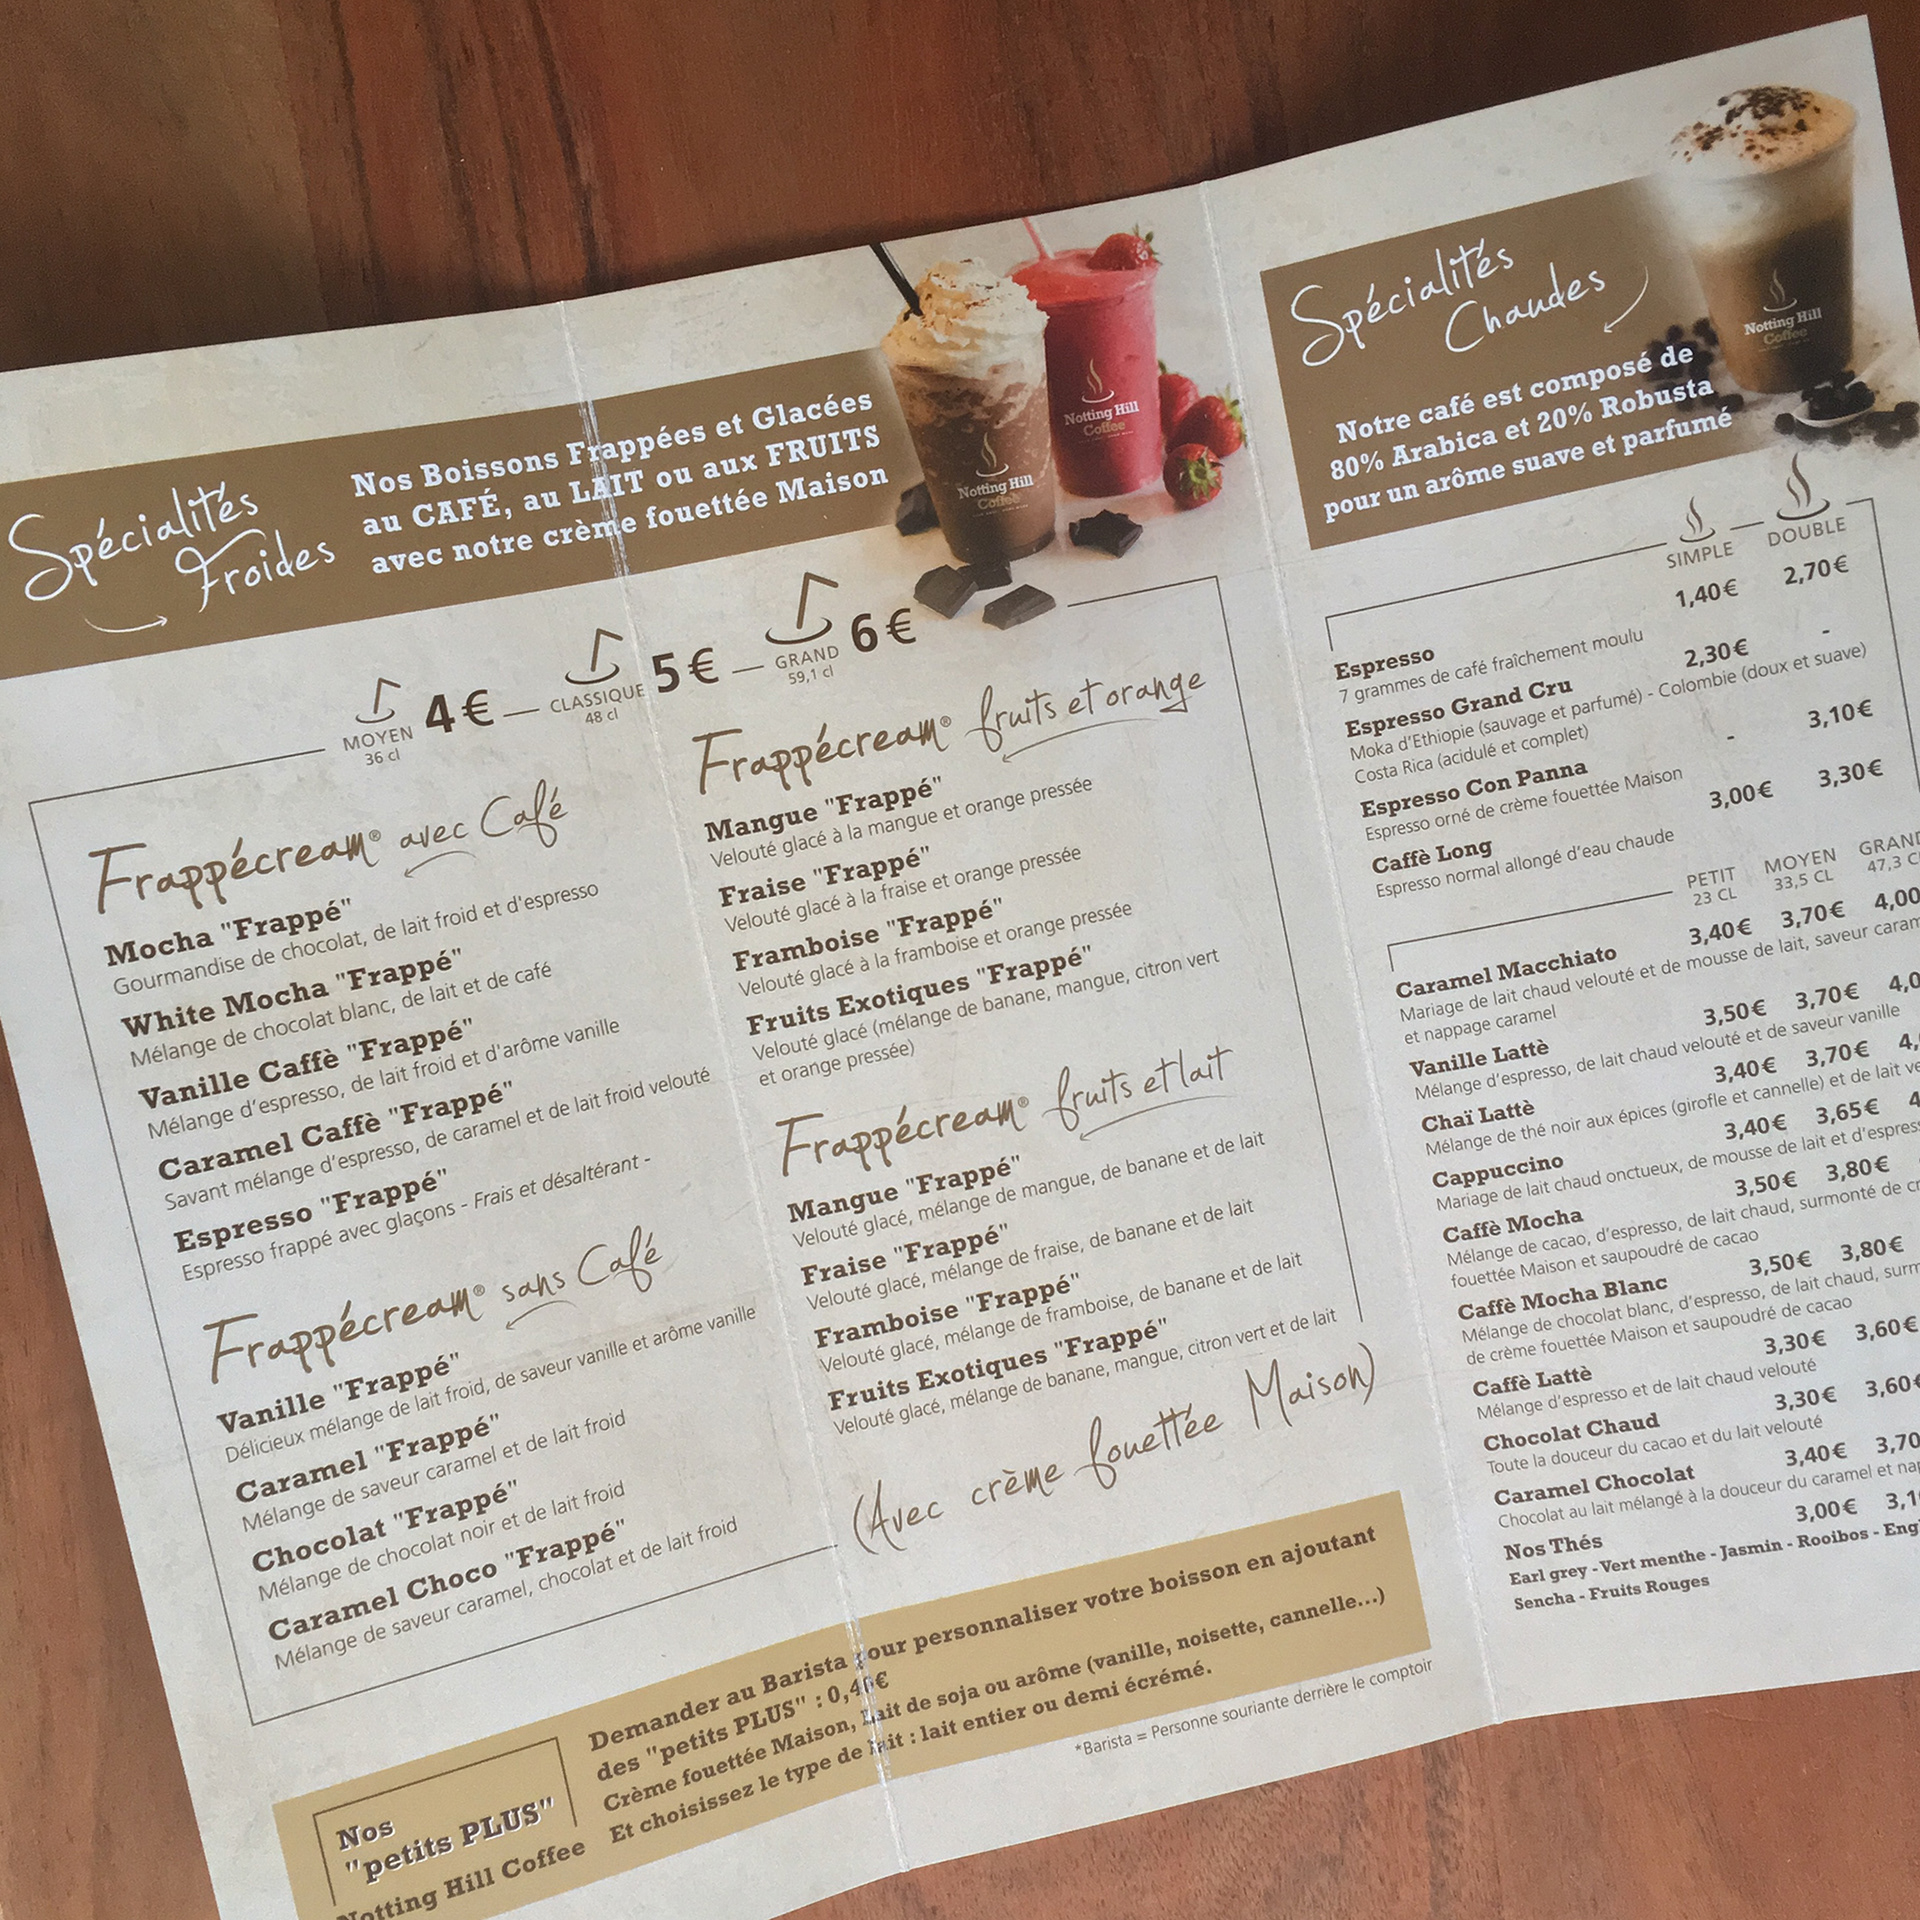 Spécialités
Froides
Nos Boissons Frappées et Glacées
au CAFÉ, au LAIT ou aux FRUITS
avec notre crème fouettée Maison
Notting Hill
Coffee
Notting Hill
Coffee
MOYEN
36 cl
4€
CLASSIQUE
48 cl
5€
GRAND
59,1 cl
6€
Frappécream® avec Café
Mocha "Frappé"
Gourmandise de chocolat, de lait froid et d'espresso
White Mocha "Frappé"
Mélange de chocolat blanc, de lait et de café
Vanille Caffè "Frappé"
Mélange d'espresso, de lait froid et d'arôme vanille
Caramel Caffè "Frappé"
Savant mélange d'espresso, de caramel et de lait froid velouté
Espresso "Frappé"
Espresso frappé avec glaçons - Frais et désaltérant -
Frappécream® sans Café
Vanille "Frappé"
Délicieux mélange de lait froid, de saveur vanille et arôme vanille
Caramel "Frappé"
Mélange de saveur caramel et de lait froid
Chocolat "Frappé"
Mélange de chocolat noir et de lait froid
Caramel Choco "Frappé"
Mélange de saveur caramel, chocolat et de lait froid
Frappécream® fruits et orange
Mangue "Frappé"
Velouté glacé à la mangue et orange pressée
Fraise "Frappé"
Velouté glacé à la fraise et orange pressée
Framboise "Frappé"
Velouté glacé à la framboise et orange pressée
Fruits Exotiques "Frappé"
Velouté glacé (mélange de banane, mangue, citron vert
et orange pressée)
Frappécream® fruits et lait
Mangue "Frappé"
Velouté glacé, mélange de mangue, de banane et de lait
Fraise "Frappé"
Velouté glacé, mélange de fraise, de banane et de lait
Framboise "Frappé"
Velouté glacé, mélange de framboise, de banane et de lait
Fruits Exotiques "Frappé"
Velouté glacé, mélange de banane, mangue, citron vert et de lait
(Avec crème fouettée Maison)
Nos
"petits PLUS"
Notting Hill Coffee
Demander au Barista pour personnaliser votre boisson en ajoutant
des "petits PLUS" :
Crème fouettée Maison, lait de soja ou arôme (vanille, noisette, cannelle...)
Et choisissez le type de lait : lait entier ou demi écrémé.
*Barista = Personne souriante derrière le comptoir
Spécialités
Chaudes
Notting Hill
Coffee
Notre café est composé de
80% Arabica et 20% Robusta
pour un arôme suave et parfumé
SIMPLE DOUBLE
Espresso 1,40€ 2,70€
7 grammes de café fraîchement moulu
Espresso Grand Cru 2,30€ -
Moka d'Ethiopie (sauvage et parfumé) - Colombie (doux et suave)
Costa Rica (acidulé et complet)
Espresso Con Panna - 3,10€
Espresso orné de crème fouettée Maison
Caffè Long 3,00€ 3,30€
Espresso normal allongé d'eau chaude
PETIT MOYEN GRAND
23 CL 33,5 CL 47,3
Caramel Macchiato 3,40€ 3,70€ 4,00
Mariage de lait chaud velouté et de mousse de lait, saveur
et nappage caramel
Vanille Lattè 3,50€ 3,70€
Mélange d'espresso, de lait chaud velouté et de saveur vanille
Chaï Lattè 3,40€ 3,70€
Mélange de thé noir aux épices (girofle et cannelle) et de lait
Cappuccino 3,40€ 3,65€
Mariage de lait chaud onctueux, de mousse de lait et
Caffè Mocha 3,50€ 3,80€
Mélange de cacao, d'espresso, de lait chaud, surmonté de
fouettée Maison et saupoudré de cacao
Caffè Mocha Blanc 3,50€ 3,80€
Mélange de chocolat blanc, d'espresso, de lait chaud,
de crème fouettée Maison et saupoudré de cacao
Caffè Lattè 3,30€ 3,60€
Mélange d'espresso et de lait chaud velouté
Chocolat Chaud 3,30€ 3,60€
Toute la douceur du cacao et du lait velouté
Caramel Chocolat 3,40€ 3,70
Chocolat au lait mélangé à la douceur du caramel et
Nos Thés 3,00€
Earl grey - Vert menthe - Jasmin - Rooibos -
Sencha - Fruits Rouges